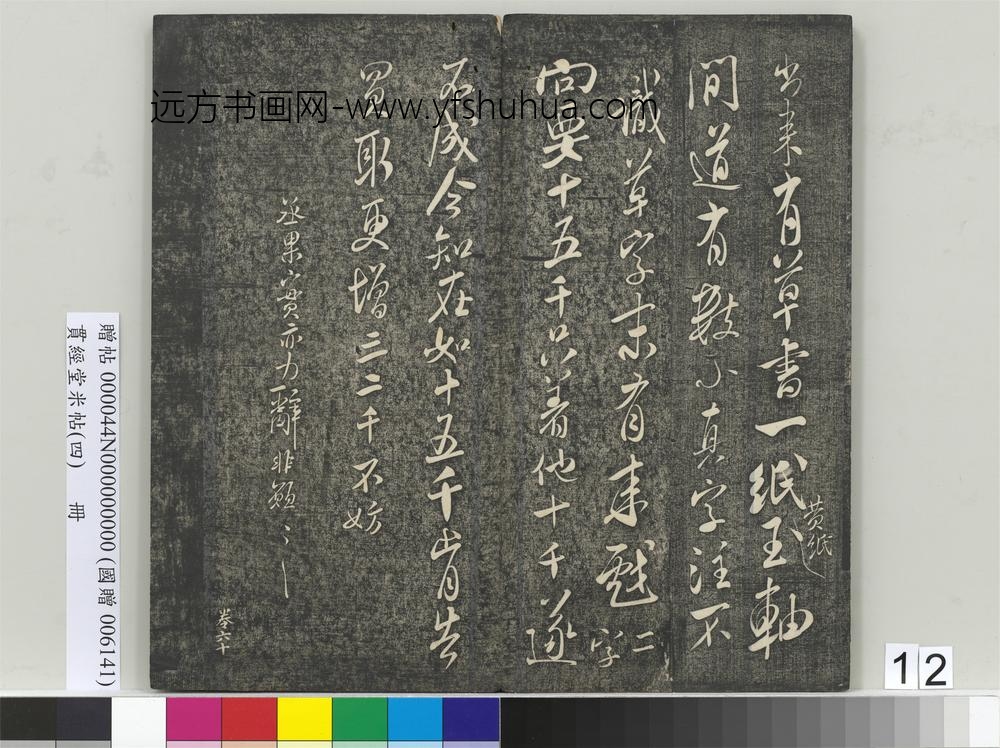 出来有草书一纸玉轴
黄纸
間道有数小真字注不
識草字末有来戲
二
字
向要十五千只著他十千遂
不成今知在如十五千肯告
買取更增三二千不妨
丞果實亦力辭非願
卷六十
远方书画网-www.yfshuhua.com
贈帖 000044N000000000 (國贈 006141)
貫經堂米帖(四) 冊
12